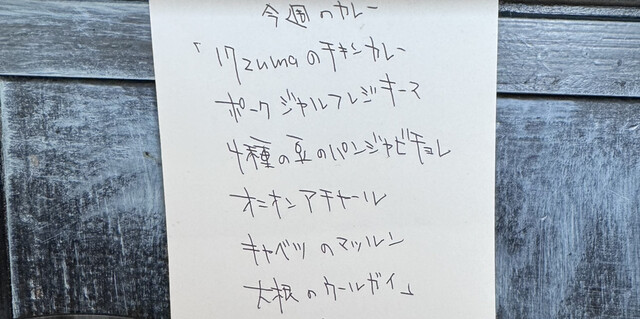 今週のカレー
「17zumaのチキンカレー
ポークジャルフレジキーマ
4種の豆のパンジャビチョレ
オニオンアチャール
キャベツのマッルン
大根のウールガイ」